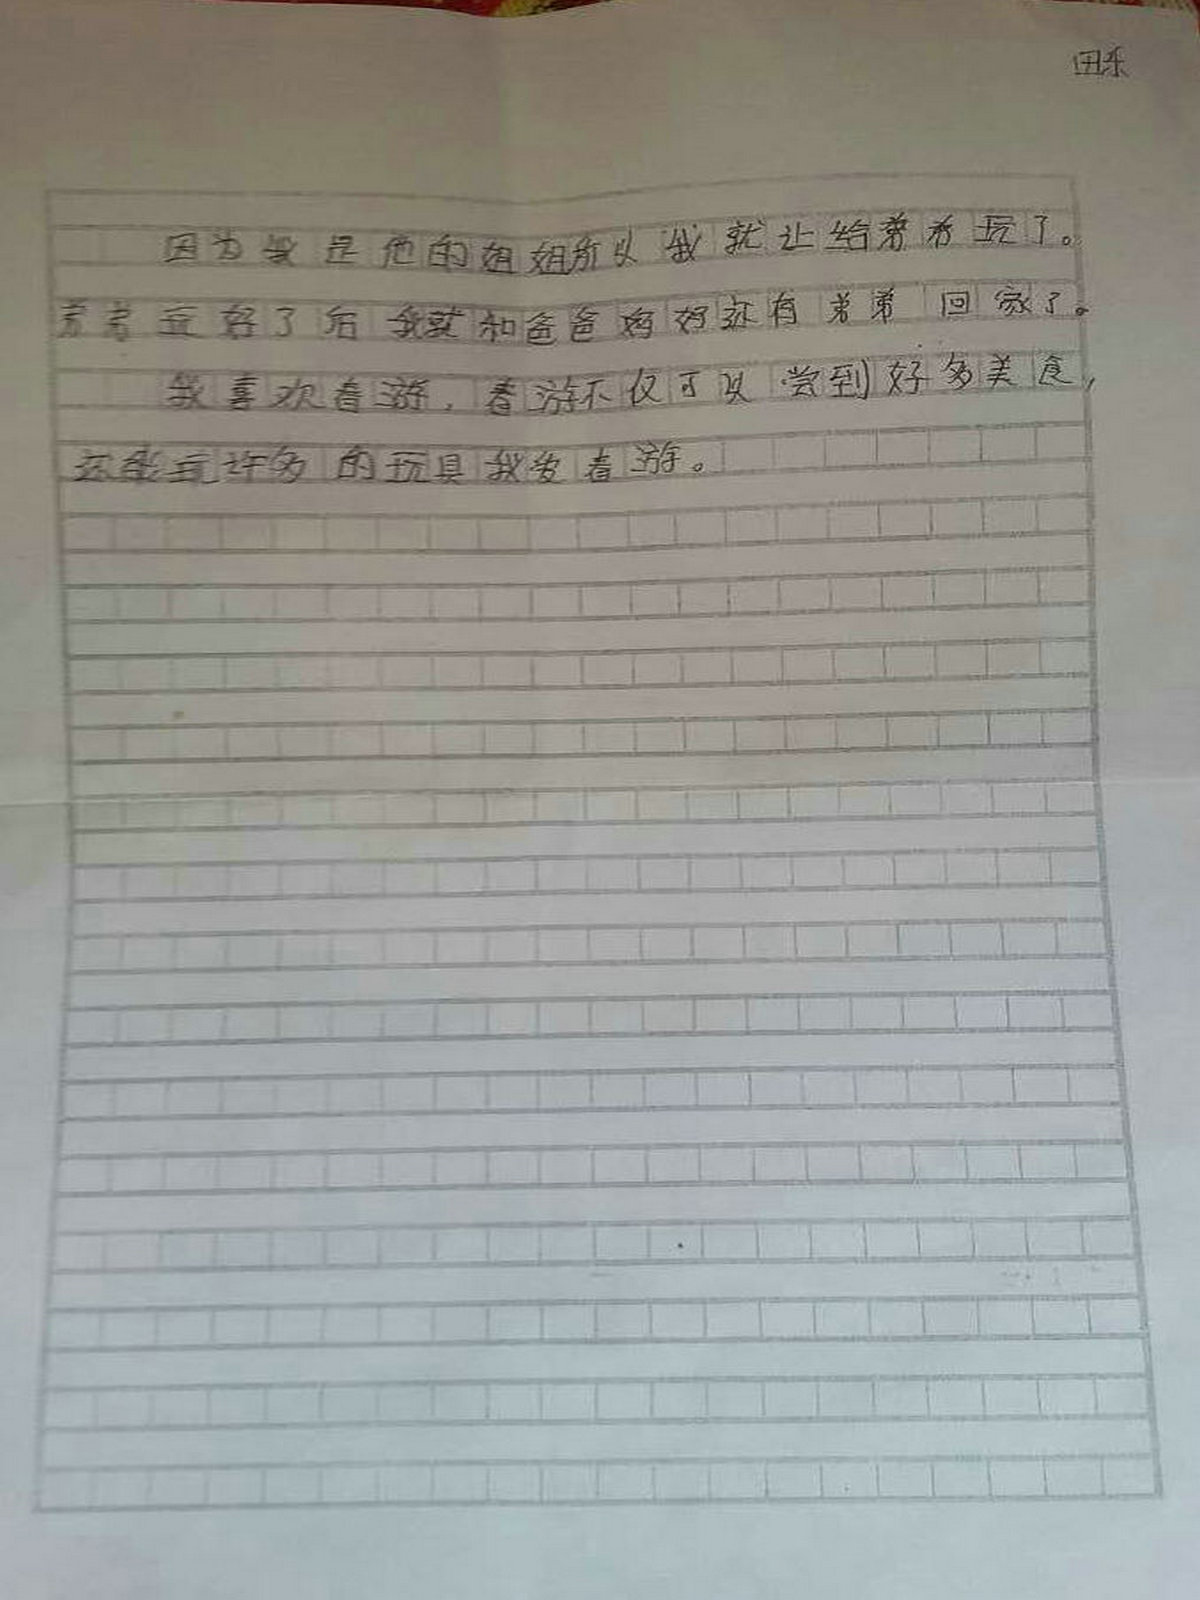 田乐
因为我是他的姐姐所以我就让给弟弟玩了。
弟弟玩好了后我就和爸爸妈好还有弟弟回家了。
我喜欢春游，春游不仅可以尝到好多美食，
还能玩许多的玩具我爱春游。